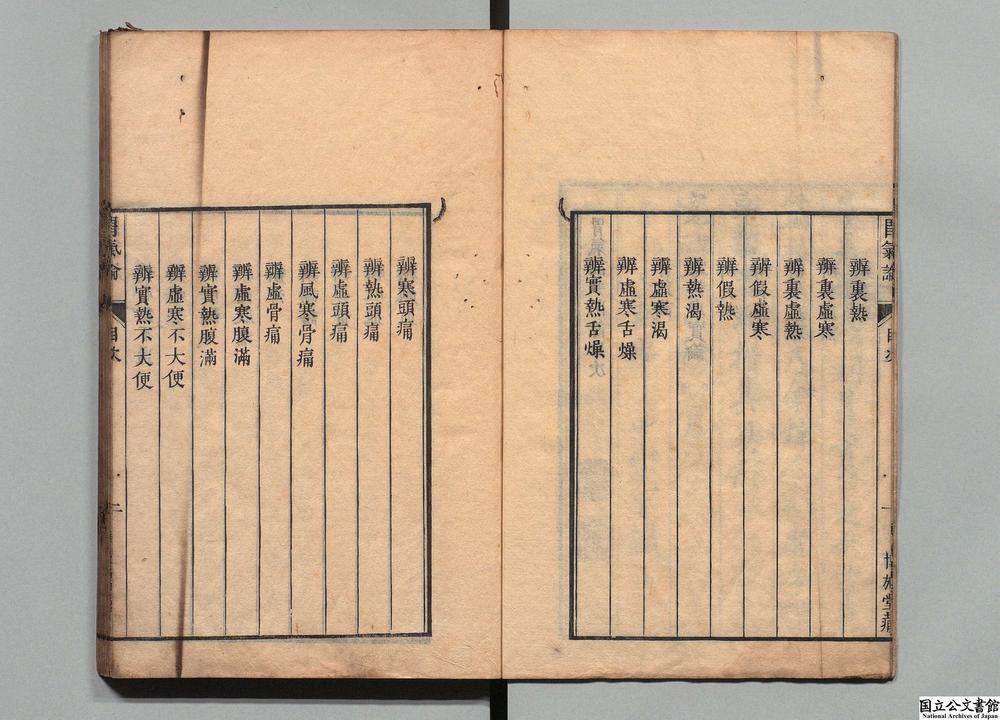 辨裏熱
辨裏虛寒
辨裏虛熱
辨假虛寒
辨假熱
辨熱渴
辨虛寒渴
辨虛寒舌燥
辨實熱舌燥
目次
一
堂藏
辨寒頭痛
辨熱頭痛
辨虛頭痛
辨風寒骨痛
辨虛骨痛
辨虛寒腹滿
辨實熱腹滿
辨虛寒不大便
辨實熱不大便
目次
二
国立公文書館
National Archives of Japan